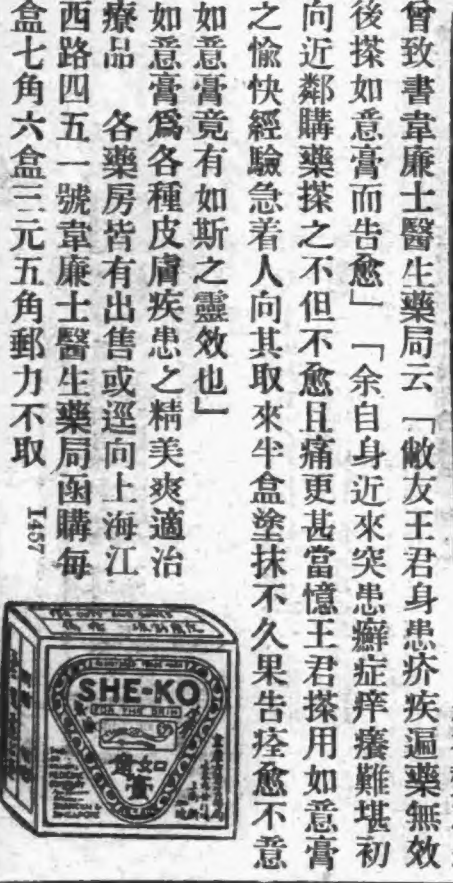 曾致書韋廉士醫生藥局云「敝友王君身患疥疾遍藥無效
後搽如意膏而告愈」「余自身近來突患癬症痒癢難堪初
向近鄰購藥搽之不但不愈且痛更甚當憶王君搽用如意膏
之愉快經驗急着人向其取來半盒塗抹不久果告痊愈不意
如意膏竟有如斯之靈效也」
如意膏爲各種皮膚疾患之精美爽適治
療品 各藥房皆有出售或逕向上海江
西路四五一號韋廉士醫生藥局函購每
盒七角六盒三元五角郵力不取
1457
SHE-KO
FOR THE SKIN
如意膏